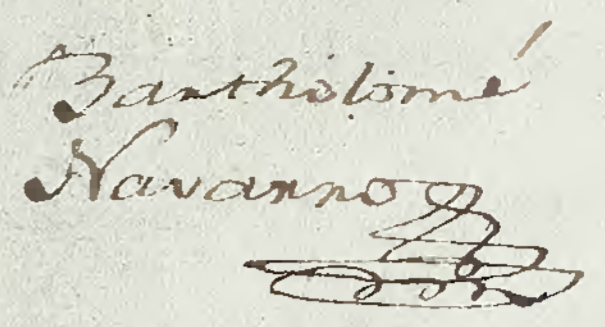 Bartholomé
Navarro